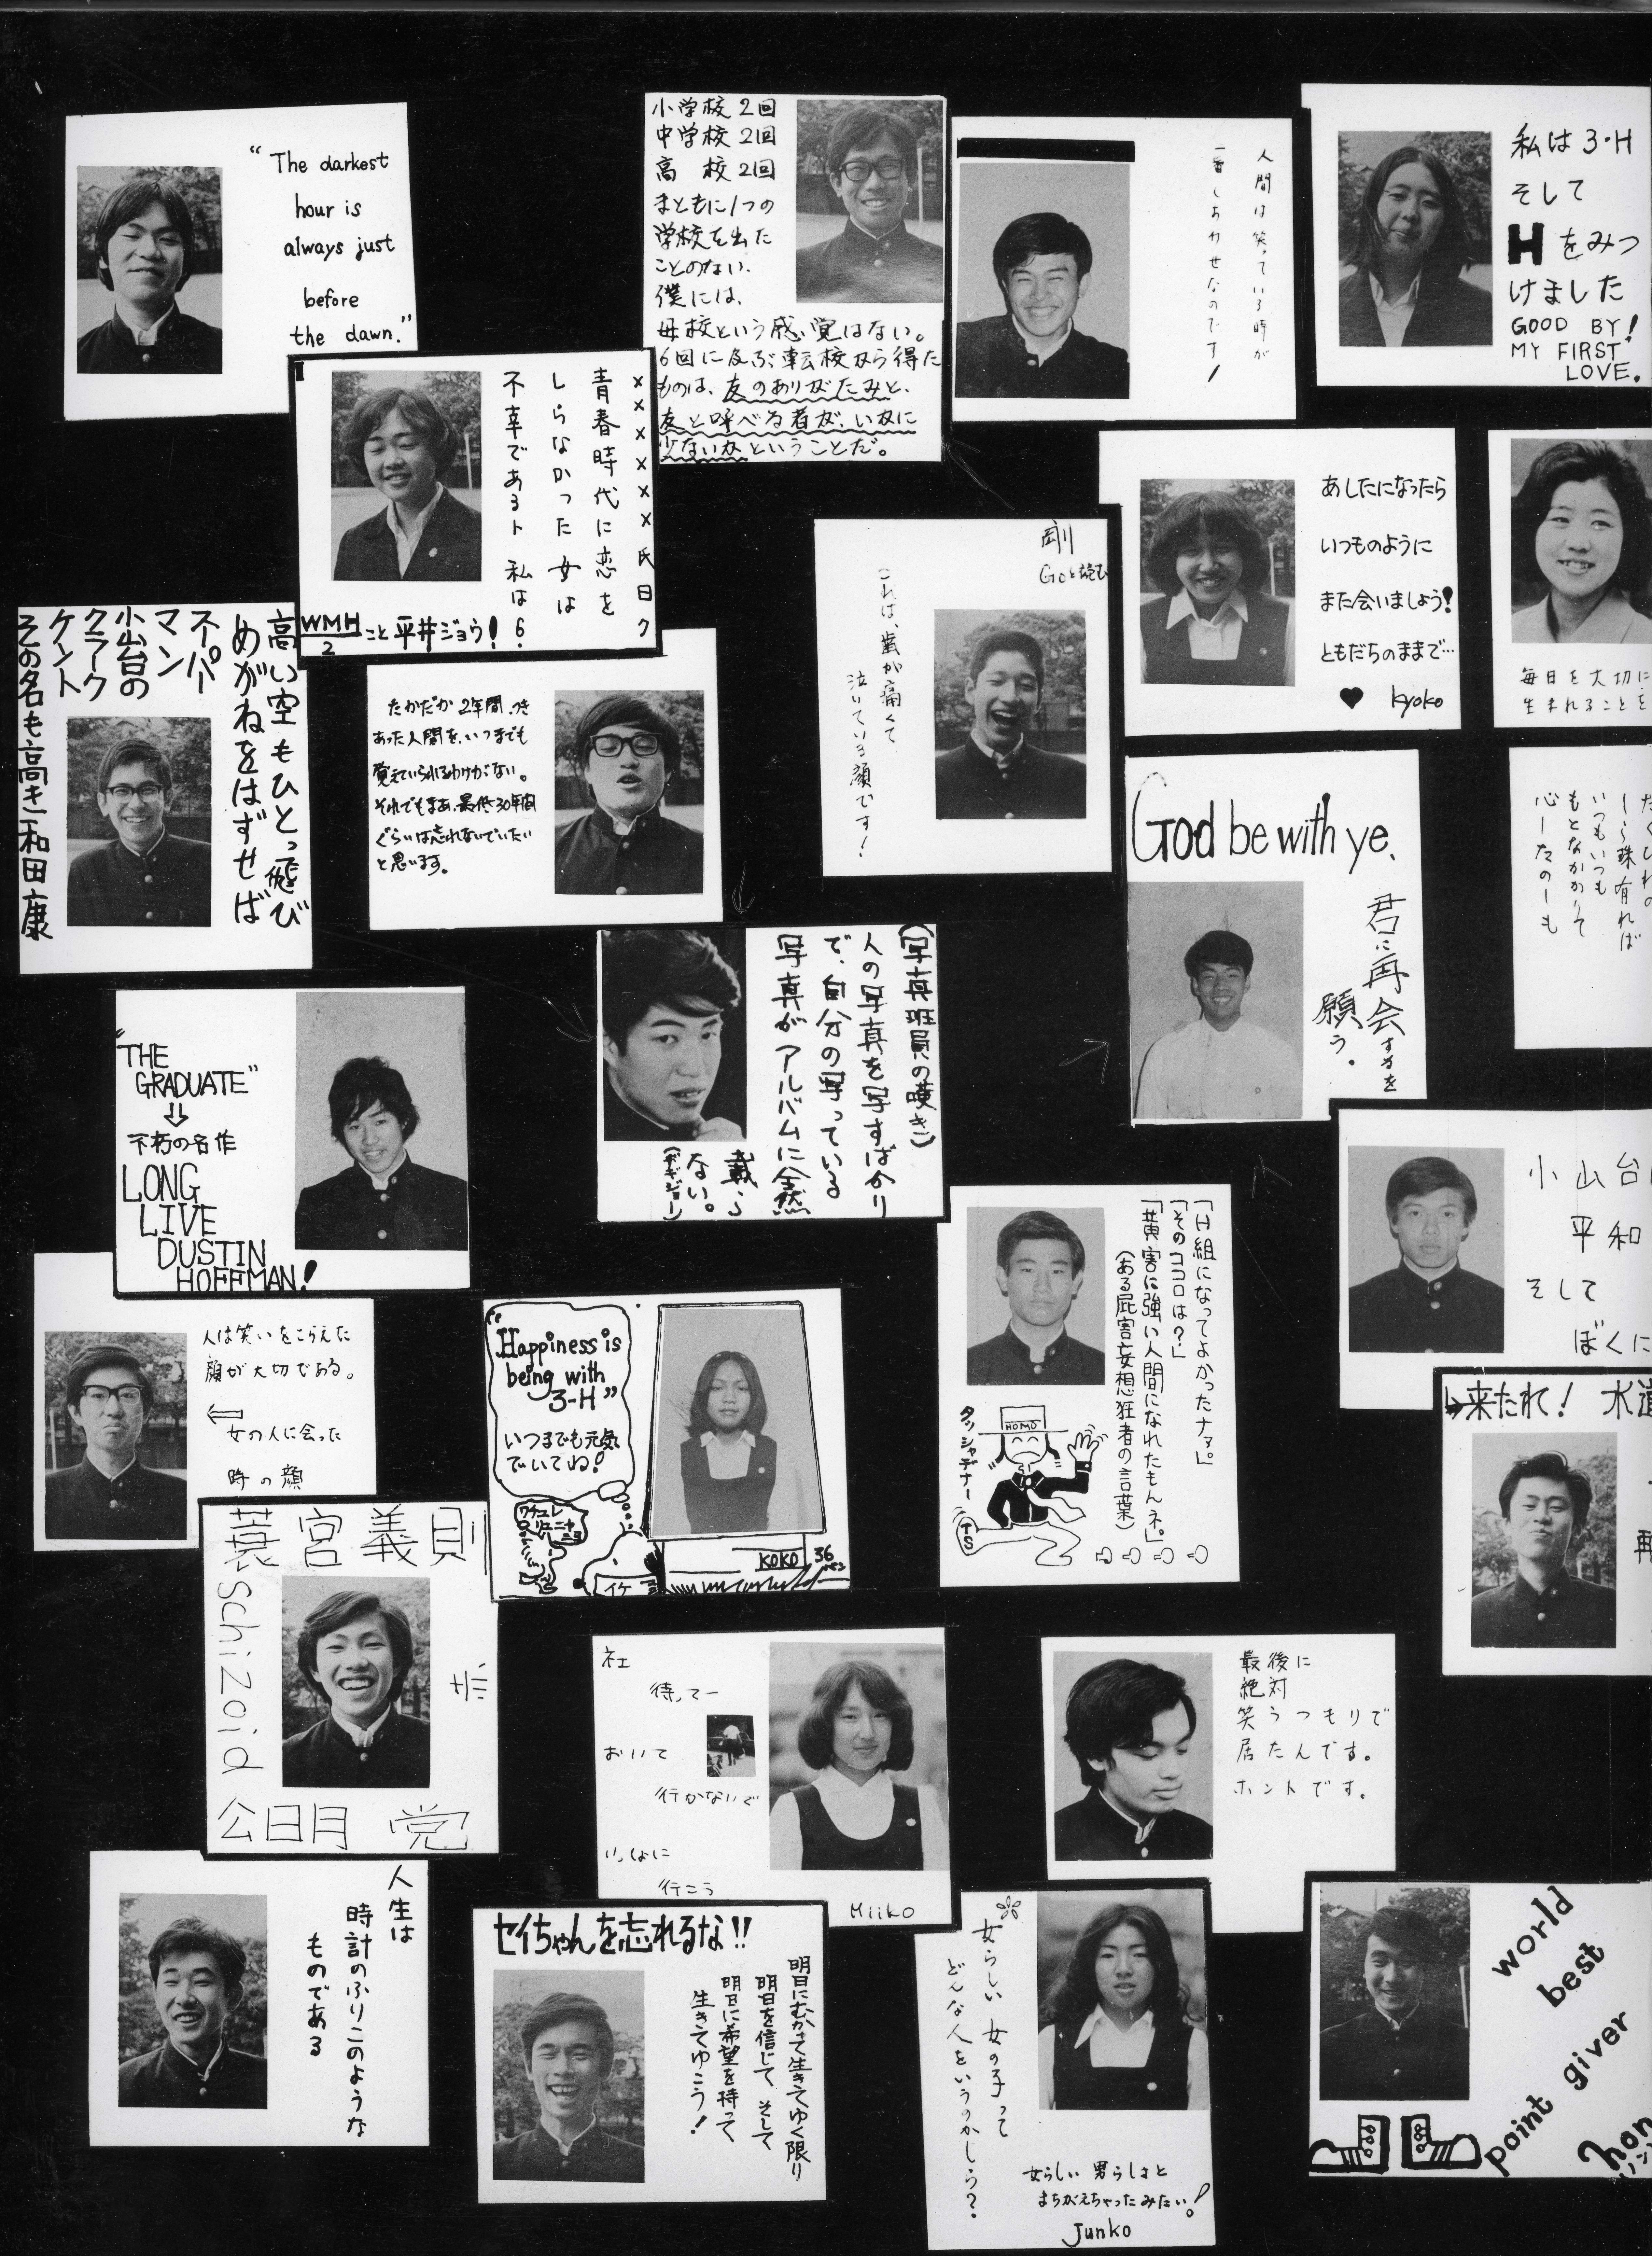 “The darkest
hour is
always just
before
the dawn.”
小学校2回
中学校2回
高 校2回
まともに1つの
学校を出た
ことのない.
僕には、
母校という感い覚はない。
6回に及ぶ転校から得た
ものは、友のありがたみと、
友と呼べる者が、いかに
少ないかということだ。
人間は笑っている時が
一番しあわせなのです!
私は3・H
そして
Hをみつ
けました
GOOD BY!
MY FIRST
LOVE.
××××××氏曰ク
青春時代に恋を
しらなかった女は
不幸であるト 私は6.
WMH
2
こと平井ジョウ!
あしたになったら
いつものように
また会いましょう!
ともだちのままで…
♥ kyoko
毎日を大切に
生まれることを
剛
Goと読む
これは、歯が痛くて
泣いている顔です!
高い空もひとっ飛び
めがねをはずせば
スーパー
マン
小山台の
クラーク
ケント
その名も高き和田康
たかだか2年間つき
あった人間を、いつまでも
覚えていられるわけがない。
それでもまあ、最低30年間
ぐらいは忘れないでいたい
と思います。
God be with ye.
君に再会するを
願う。
し〜珠有れば
いつもいつも
もとなかかりて
心一たの一も
(写真班員の嘆き)
人の写真を写すばかり
で、自分の写っている
写真がアルバムに全然
載ら
ない。
“THE
GRADUATE”
⇩
不朽の名作
LONG
LIVE
DUSTIN
HOFFMAN!
小山台
平和
そして
ぼくに
「H組になってよかったナァ。」
「そのココロは?」
「黄害に強い人間になれたもんネ。」
(ある屁害妄想狂者の言葉)
HOMO
タッシャデナー
TS
人は笑いをこらえた
顔が大切である。
⇦
女の人に会った
時の顔
“Happiness is
being with
3-H”
いつまでも元気
でいてね!
KOKO
36
イケ
来たれ! 水道
再
蓑宮義則
Schizoid
公日月 党
社
待ってー
おいて
行かないで
いっしょに
行こう
Miiko
最後に
絶対
笑うつもりで
居たんです。
ホントです。
人生は
時計のふりこのような
ものである
セイちゃんを忘れるな!!
明日にむかって生きてゆく限り
明日を信じて そして
明日に希望を持って
生きてゆこう!
女らしい 女の子って
どんな人をいうのかしら?
女らしい 男らしさと
まちがえちゃったみたい!
Junko
world
best
point giver